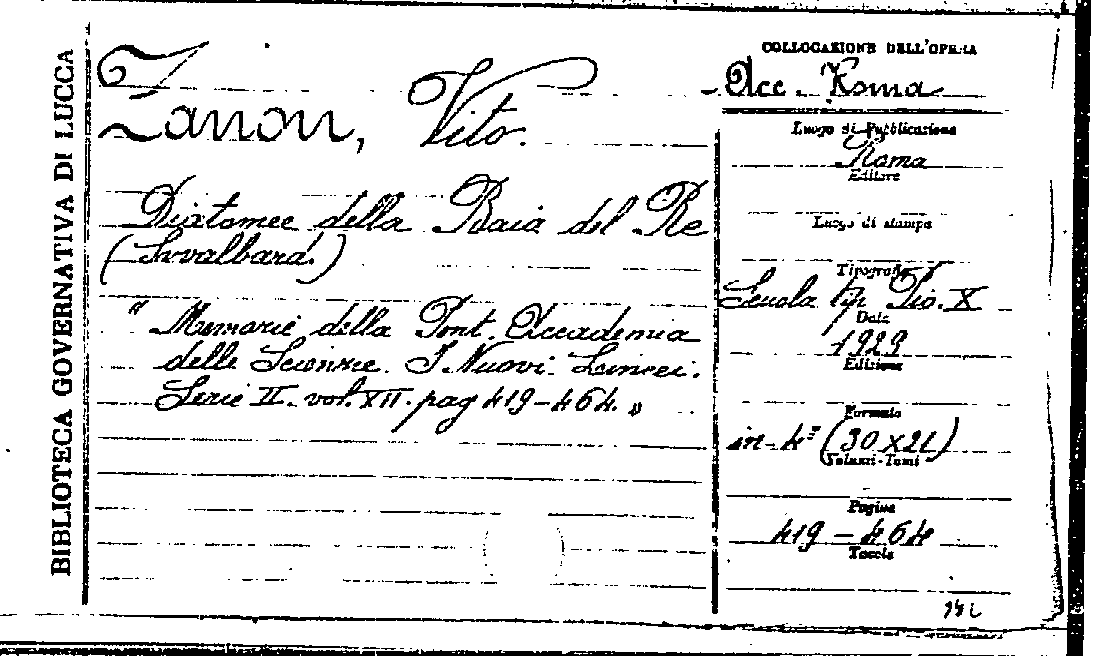 BIBLIOTECA GOVERNATIVA DI LUCCA
Zanon, Vito.
Diatomee della Baia del Re
(Svvalbard.)
" Memorie della Pont. Accademia
delle Scienze. I. Nuovi. Lincei.
Serie II. vol. XII. pag 419-464. "
COLLOCAZIONE DELL'OPERA
Acc. Roma
Luogo di Pubblicazione
Roma
Editore
Luogo di stampa
Tipografia
Scuola tip Pio. X
Data
1929
Edizione
Formato
in-4° (30 x 21)
Volumi-Tomi
Pagine
419 - 464
Tavole